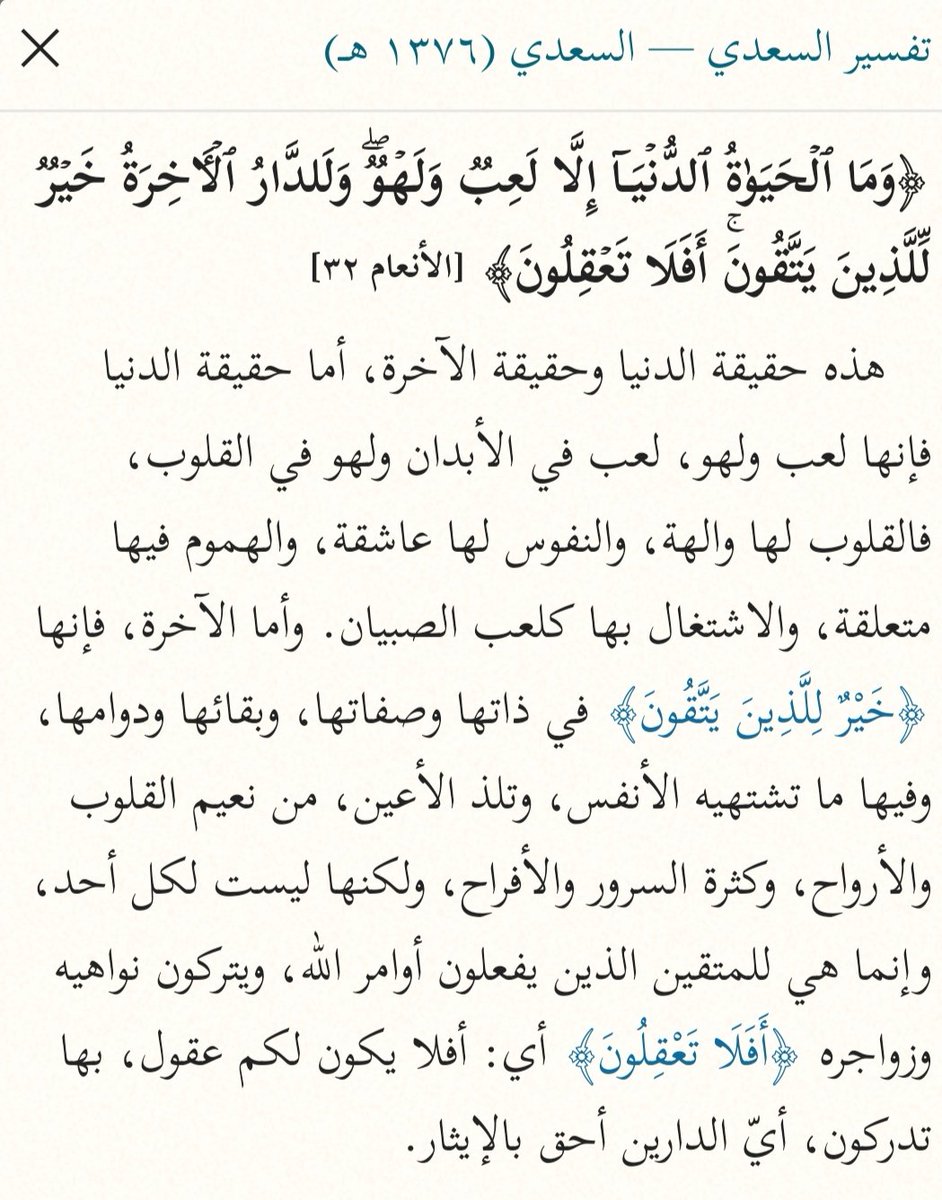 تفسير السعدي — السعدي (١٣٧٦ هـ)
﴿وَمَا ٱلۡحَيَوٰةُ ٱلدُّنۡيَآ إِلَّا لَعِبٞ وَلَهۡوٞۖ وَلَلدَّارُ ٱلۡأٓخِرَةُ خَيۡرٞ
لِّلَّذِينَ يَتَّقُونَۚ أَفَلَا تَعۡقِلُونَ﴾ [الأنعام ٣٢]
هذه حقيقة الدنيا وحقيقة الآخرة، أما حقيقة الدنيا
فإنها لعب ولهو، لعب في الأبدان ولهو في القلوب،
فالقلوب لها والهة، والنفوس لها عاشقة، والهموم فيها
متعلقة، والاشتغال بها كلعب الصبيان. وأما الآخرة، فإنها
﴿خَيْرٌ لِلَّذِينَ يَتَّقُونَ﴾ في ذاتها وصفاتها، وبقائها ودوامها،
وفيها ما تشتهيه الأنفس، وتلذ الأعين، من نعيم القلوب
والأرواح، وكثرة السرور والأفراح، ولكنها ليست لكل أحد،
وإنما هي للمتقين الذين يفعلون أوامر الله، ويتركون نواهيه
وزواجره ﴿أَفَلَا تَعْقِلُونَ﴾ أي: أفلا يكون لكم عقول، بها
تدركون، أيّ الدارين أحق بالإيثار.